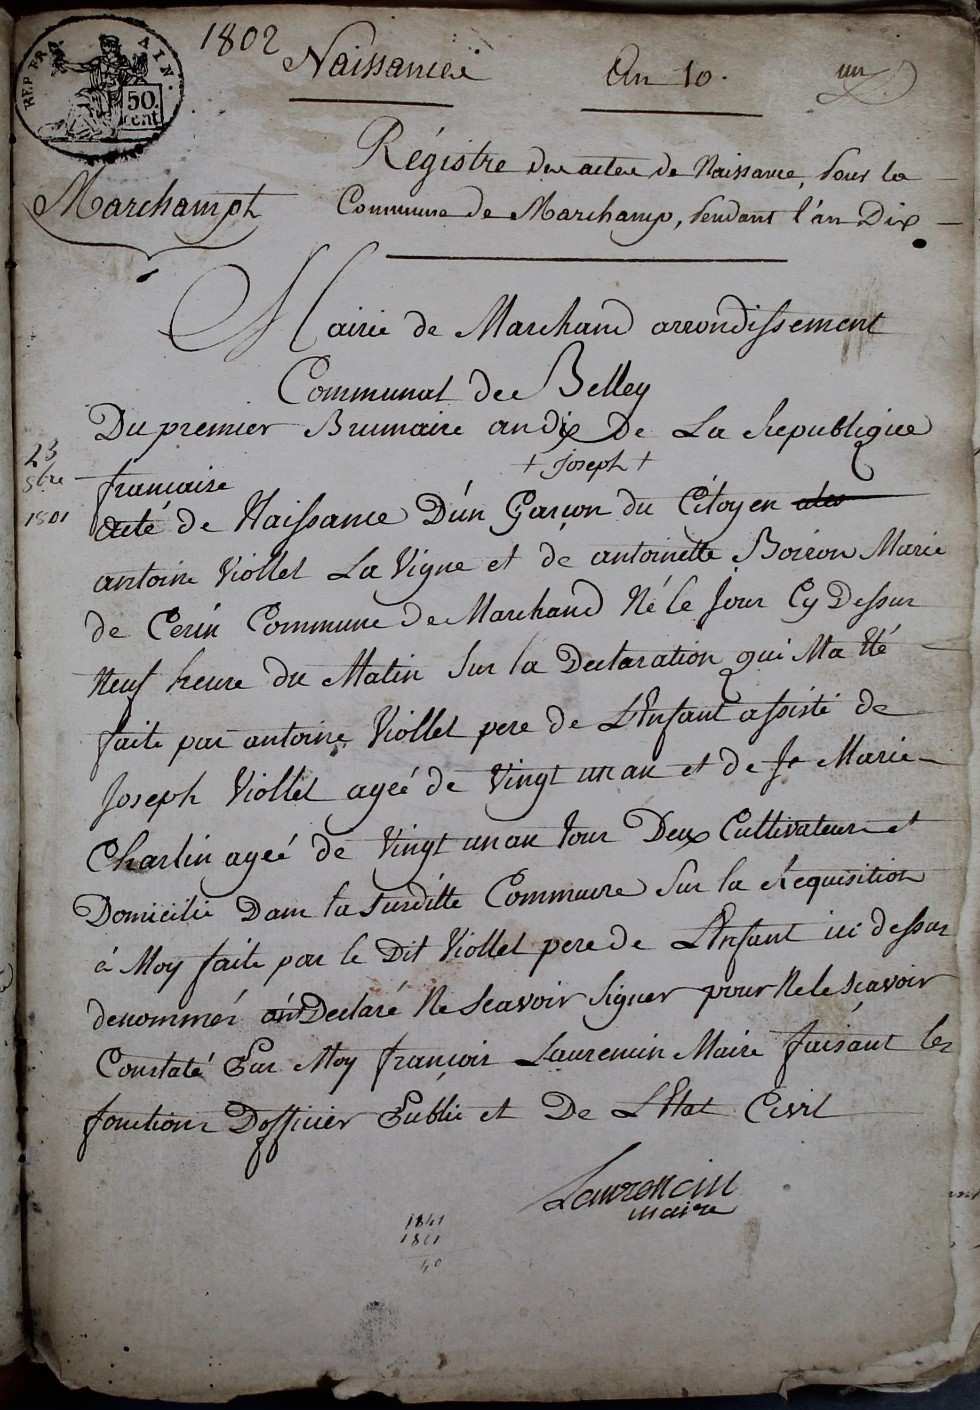 REP. FRA AIN.
50. cent.
1802
Naissances
An 10.
un
Marchampt
Régistre des actes de Naissance, pour la
Commune de Marchamp, pendant l'an Dix
Mairie de Marchand arrondissement
Communal de Belley
Du premier Brumaire an dix de La Republique
23
8bre
1801
francaise
+ Joseph +
acté de Naissance D'un Garçon du Citoyen
antoine Viollet La Vigne et de antoinette Boiron Marie
de Cerin Commune de Marchand Né le Jour Cy Dessus
Neuf heure du Matin Sur la Declaration qui Ma Eté
faite par antoine Viollet pere de L'Enfant assisté de
Joseph Viollet agéé de Vingt un an et de Je Marie
Charlin ageé de Vingt un an tous Deux Cultivateurs et
Domicilié Dans la Susditte Commune Sur la Requisition
à Moy faite par le Dit Viollet pere de L'Enfant ici dessus
denommés Declaré Ne Scavoir Signer pour Ne le Scavoir
Constaté Par Moy françois Laurencin Maire faisant les
fonctions D'officier Public et De L'Etat Civil
Laurencin
maire
1841
1801
40